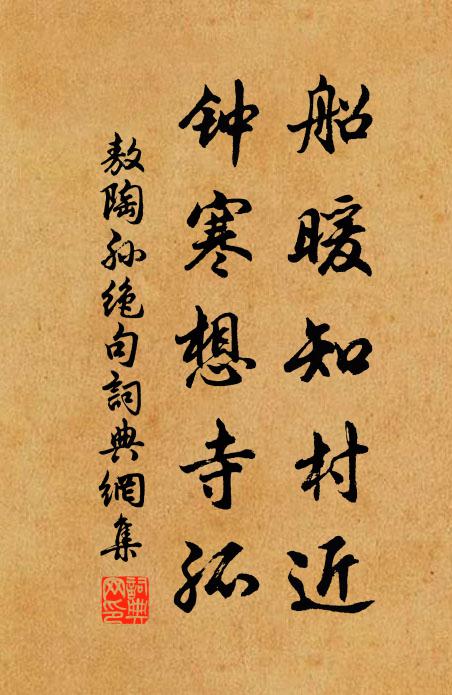 船暖知村近
钟寒想寺孤
敖陶孙绝句詞典網集
詞典网印